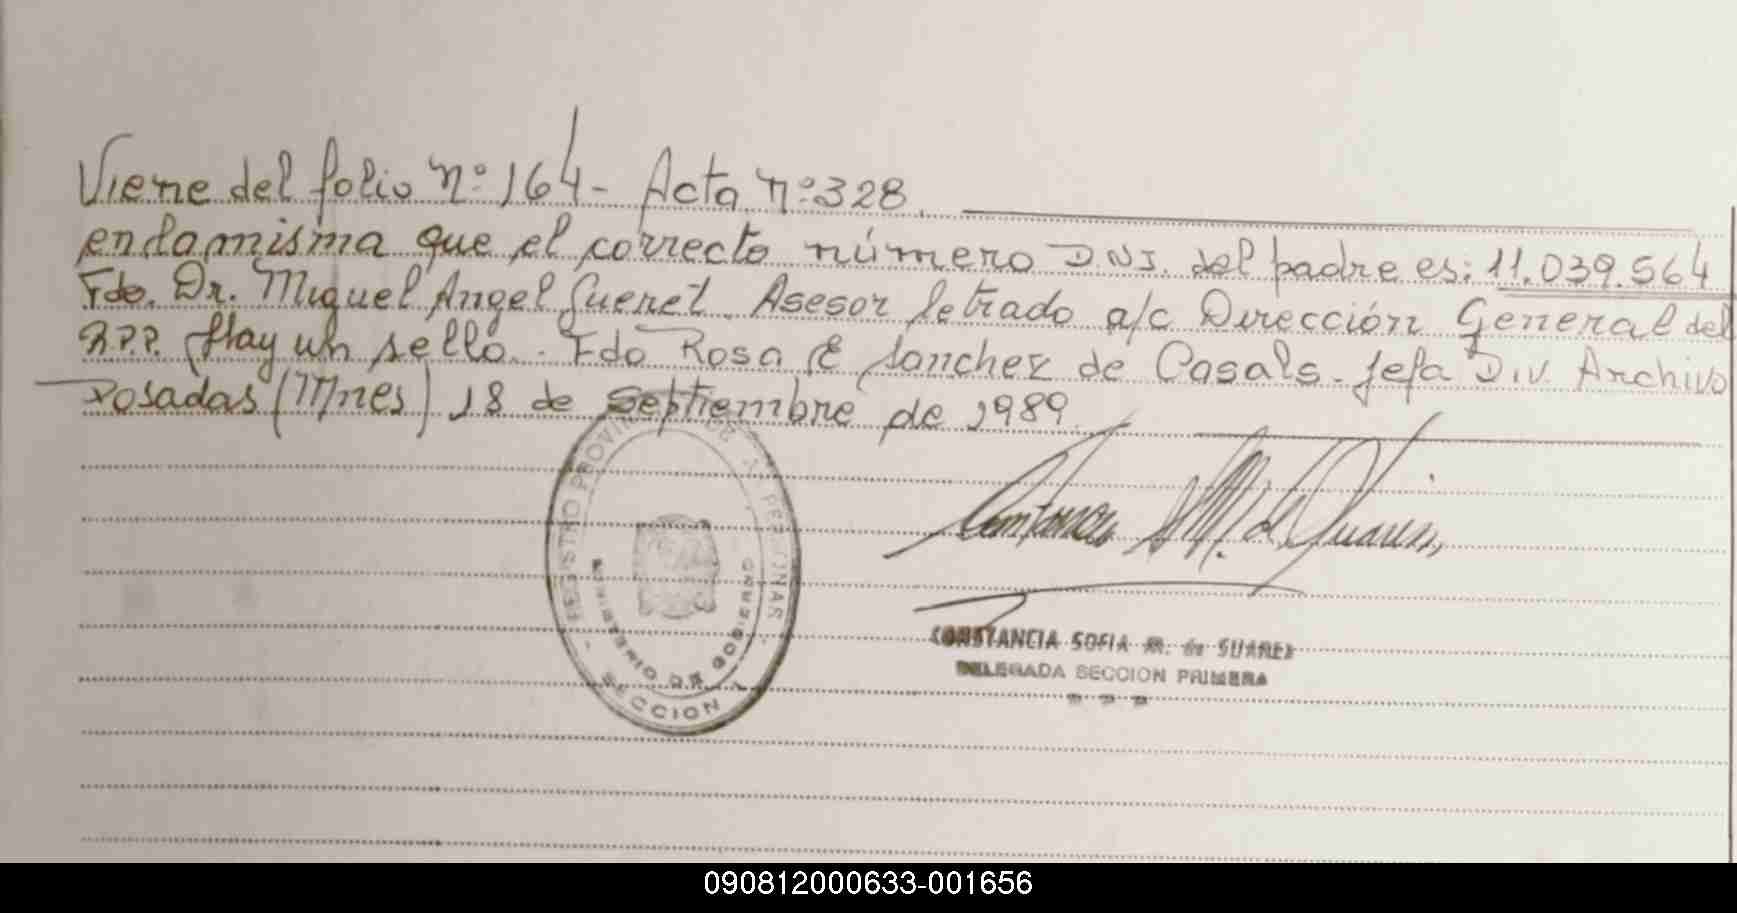 Viene del folio nº 164 - Acta nº 328.
en la misma que el correcto número D.N.I. del padre es: 11.039.564
Fdo. Dr. Miguel Angel Guenet. Asesor letrado a/c Dirección General del
R.P.P. Hay un sello. Fdo Rosa E Sanchez de Casals. Jefa Div. Archivo
Posadas (Mnes) 18 de Septiembre de 1989.
REGISTRO PROVINCIAL DE LA PERSONAS
MINISTERIO DE GOBIERNO
SECCION 1
CONSTANCIA SOFIA M. de SUAREZ
DELEGADA SECCION PRIMERA
090812000633-001656